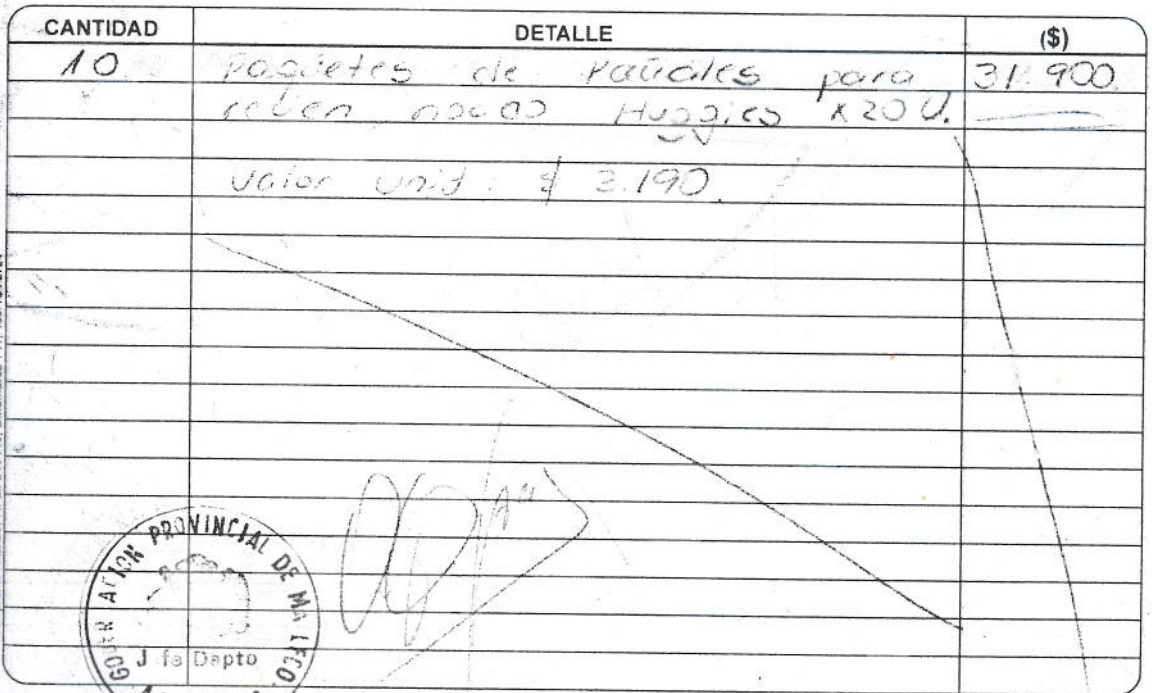 CANTIDAD DETALLE ($)
10 paquetes de Pañales para 31.900
recien nacido Huggies x20 U.
valor unid: $ 3.190
GOBERNACION PROVINCIAL DE MALLECO
Jefe Depto